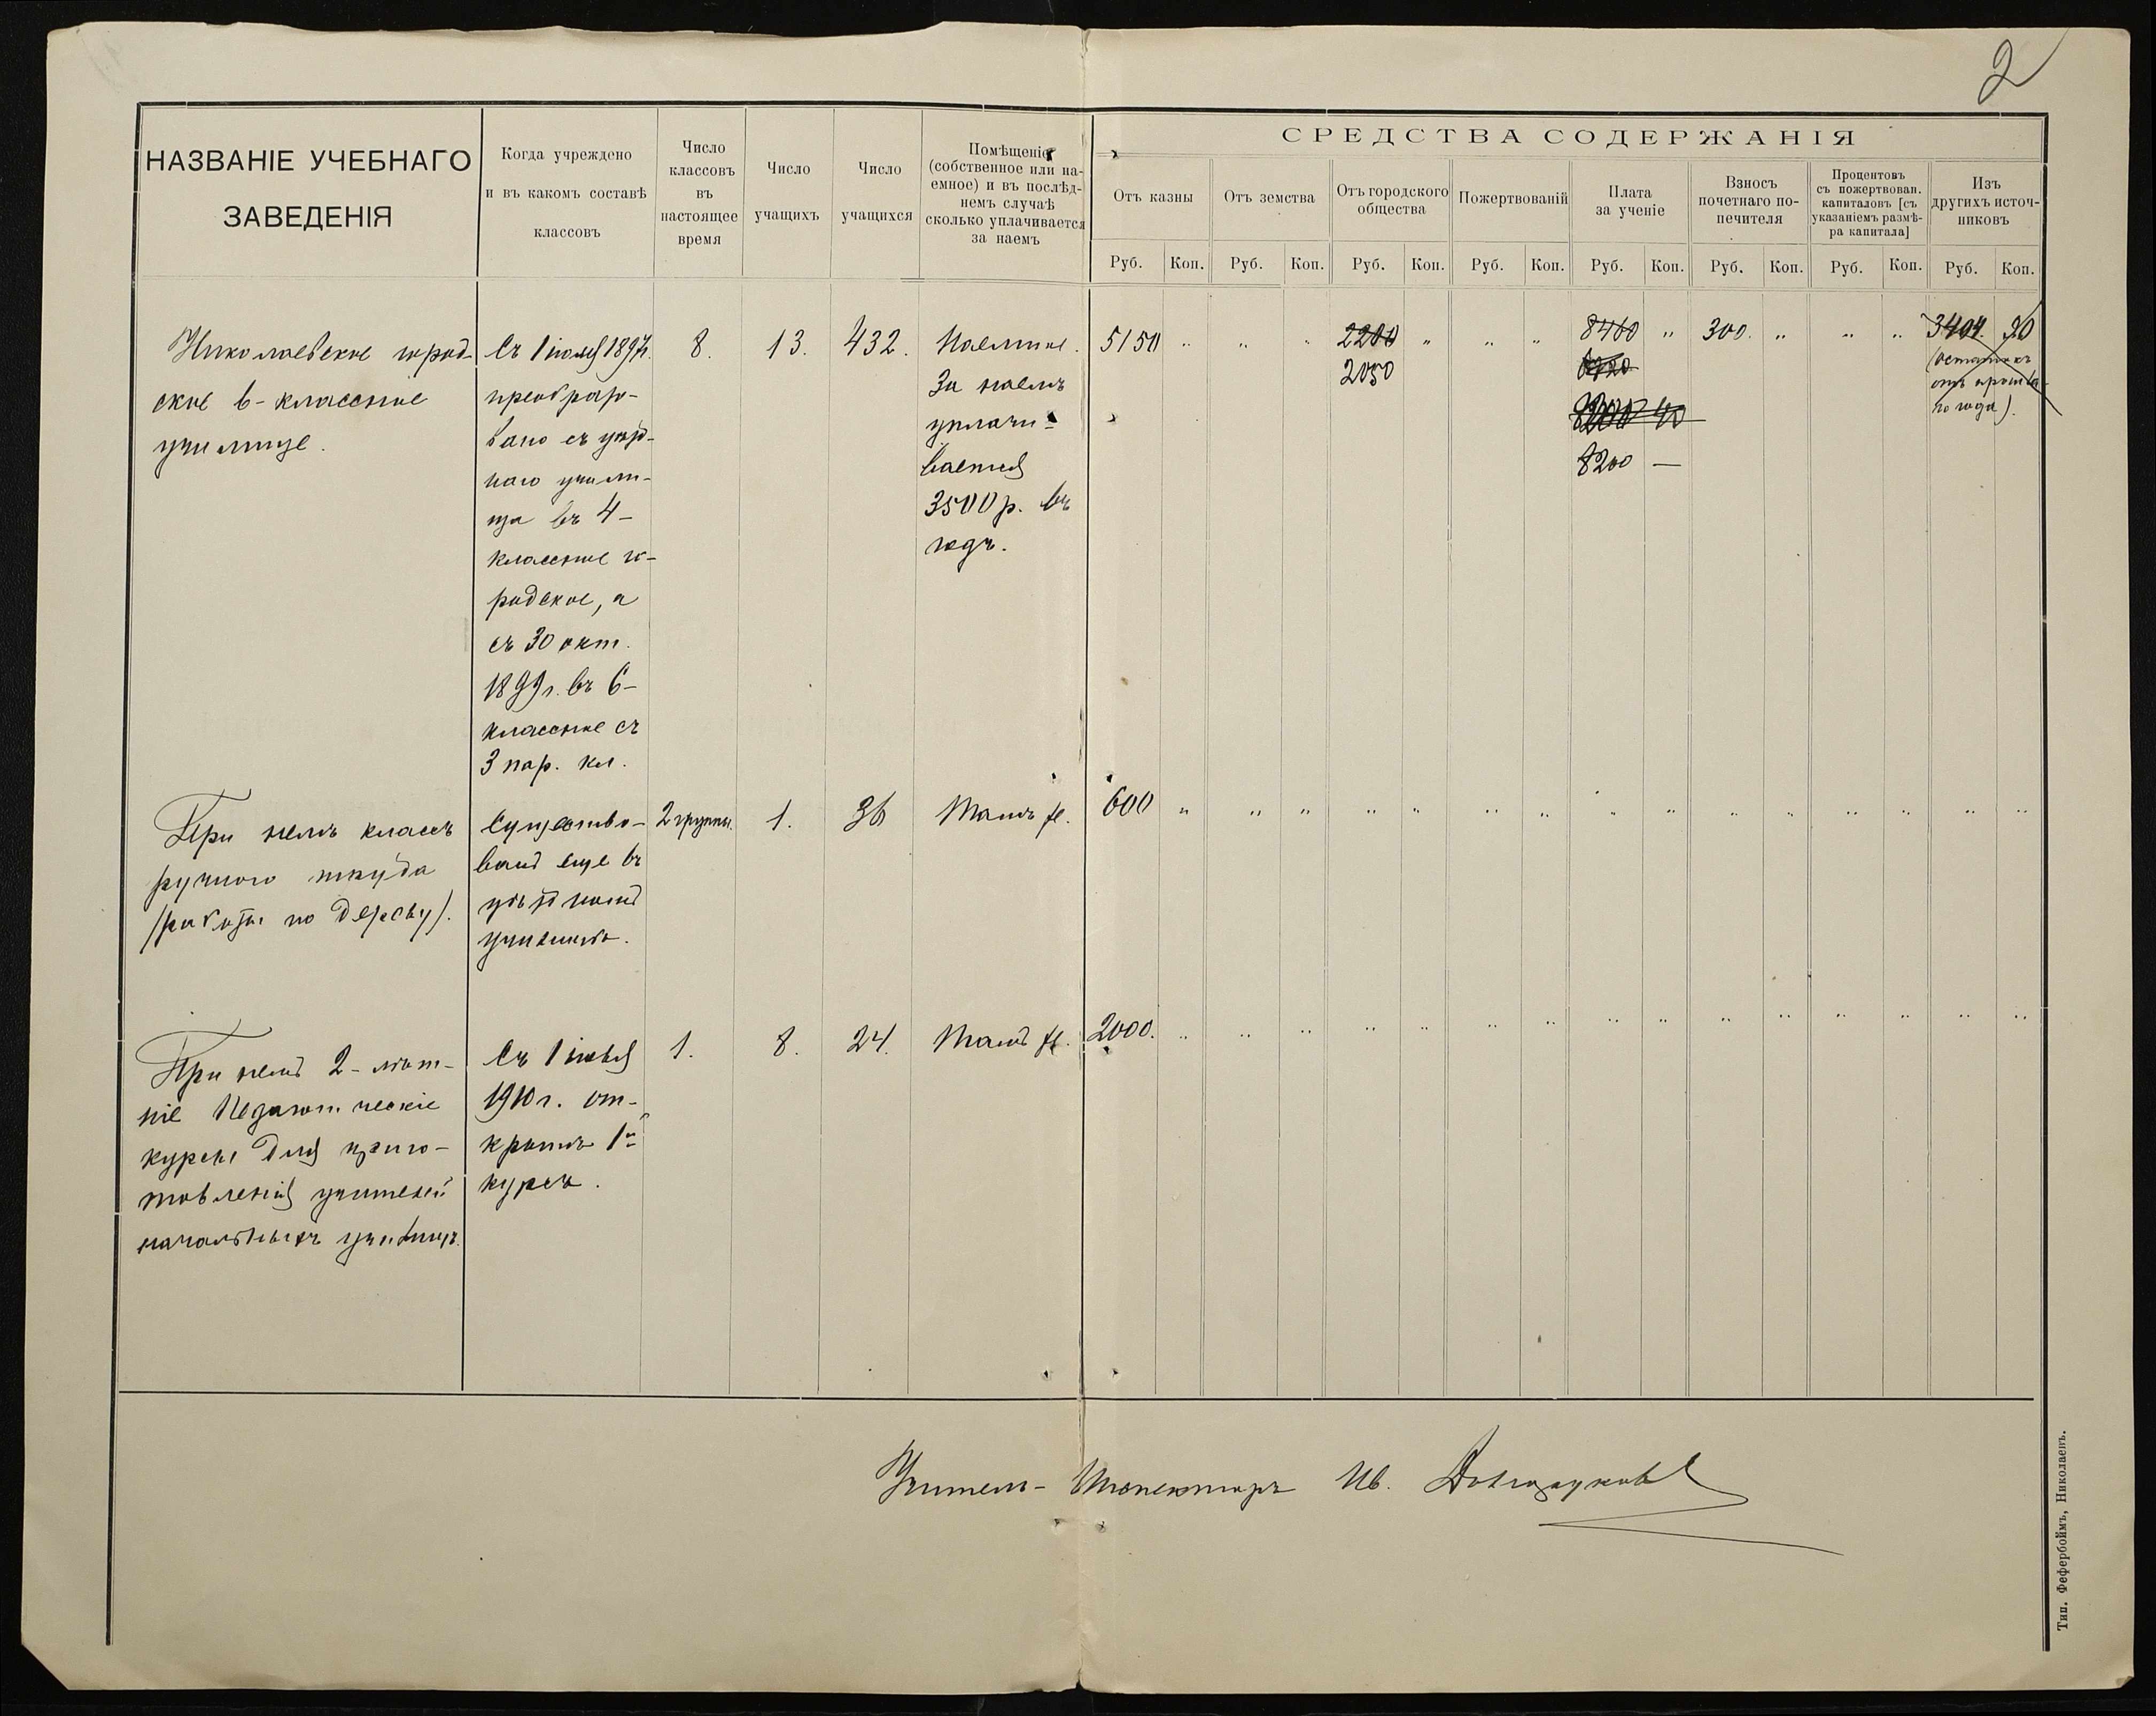 2
НАЗВАНІЕ УЧЕБНАГО
ЗАВЕДЕНІЯ
Когда учреждено
и въ какомъ составѣ
классовъ
Число
классовъ
въ
настоящее
время
Число
учащихъ
Число
учащихся
Помѣщеніе
(собственное или на-
емное) и въ послѣд-
немъ случаѣ
сколько уплачивается
за наемъ
СРЕДСТВА СОДЕРЖАНІЯ
Отъ казны
Отъ земства
Отъ городского
общества
Пожертвованій
Плата
за ученіе
Взносъ
почетнаго по-
печителя
Процентовъ
съ пожертвован.
капиталовъ [съ
указаніемъ размѣ-
ра капитала]
Изъ
другихъ источ-
никовъ
Руб. Коп. Руб. Коп. Руб. Коп. Руб. Коп. Руб. Коп. Руб. Коп. Руб. Коп. Руб. Коп.
Николаевское город-
ское 6-классное
училище.
Съ 1 іюля 1897г.
преобразо-
вано съ уѣзд-
наго учили-
ща въ 4-
классное го-
родское, а
съ 30 окт.
1899г. въ 6-
классное съ
3 пар. кл.
8.
13.
432.
Наемное.
За наемъ
уплачи-
вается
3500 р. въ
годъ.
5150 " " " 2200 " " " 8460 " 300. " " " 3404. 30
2050
8200 40
8200 —
(остатокъ
отъ прошла-
го года).
При немъ классъ
ручного труда
(работы по дереву).
Существо-
валъ еще въ
уѣздномъ
училищѣ.
2 группы.
1.
36
Тамъ же.
600 " " " " " " " " " " " " " " "
При немъ 2-лѣт-
ніе Педагогическіе
курсы для приго-
товленія учителей
начальныхъ училищъ.
Съ 1 іюля
1910 г. от-
крытъ 1й
курсъ.
1.
8.
24.
Тамъ же.
2000. " " " " " " " " " " " " " " "
Учитель-Инспекторъ Ив.
Тип. Фефербоймъ, Николаевъ.